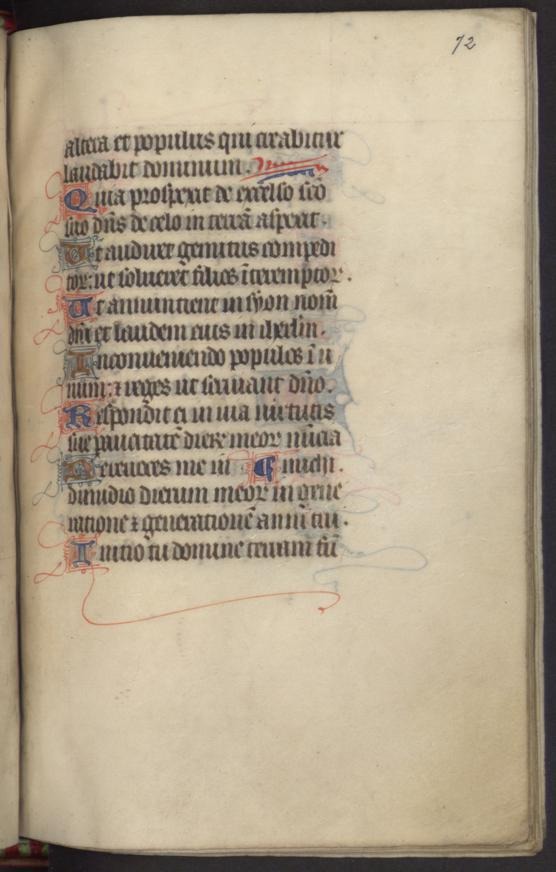 72
altera et populus qui creabitur
laudabit dominum.
Quia prospexit de excelso sc̄o
suo dn̄s de celo in terrā aspexit.
Ut audiret gemitus compedi
tor: ut solueret filios īteremptor.
Ut annuntient in syon nom̄
dn̄i et laudem eius in ihrlm̄.
Inconueniendo populos ī u
num: ⁊ reges ut seruiant dn̄o.
Respondit ei in uia uirtutis
sue paucitatē dierū meor nūcia
Ne reuoces me in michi.
dimidio dierum meor in gene
ratione ⁊ generationē anni tui.
Initio tu domine terram fū